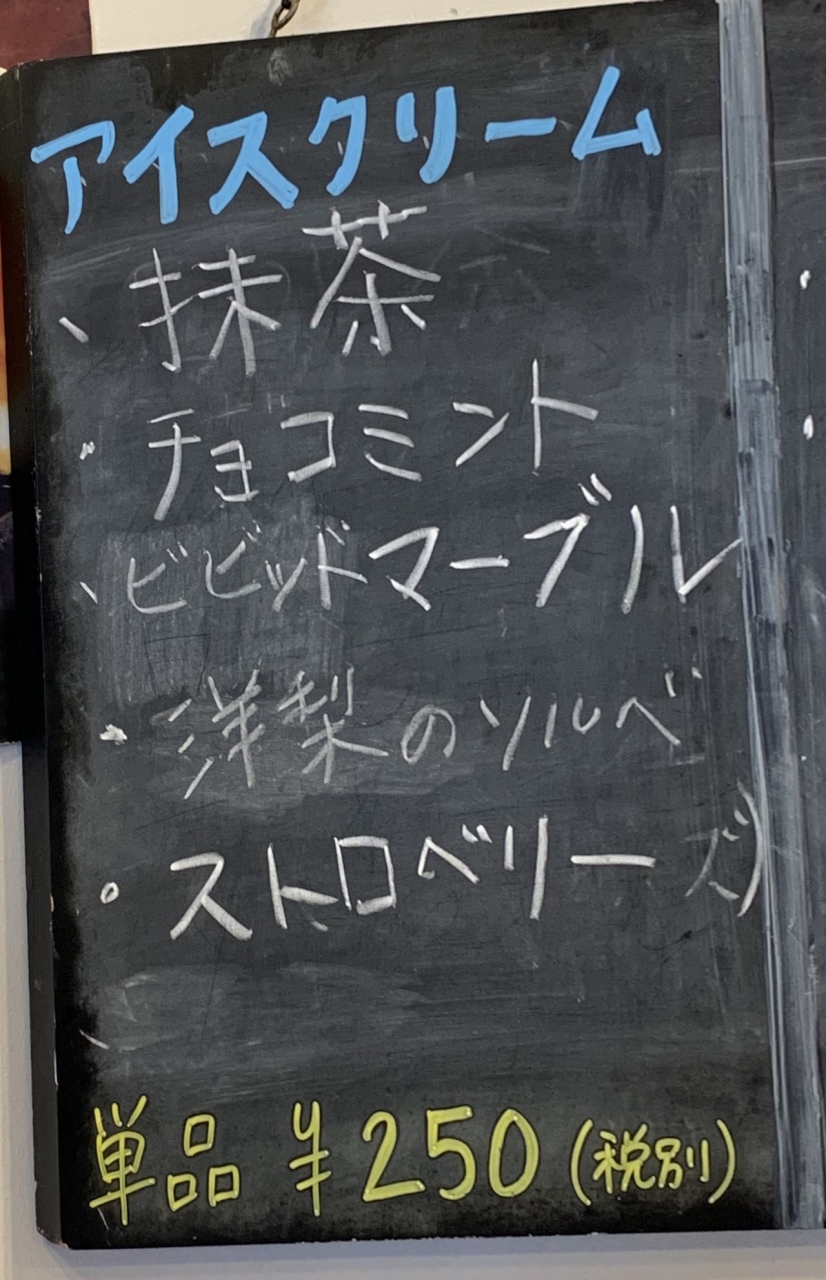 アイスクリーム
、抹茶
・チョコミント
、ビビッドマーブル
・洋梨のソルベ
・ストロベリー
単品 ¥250 (税別)